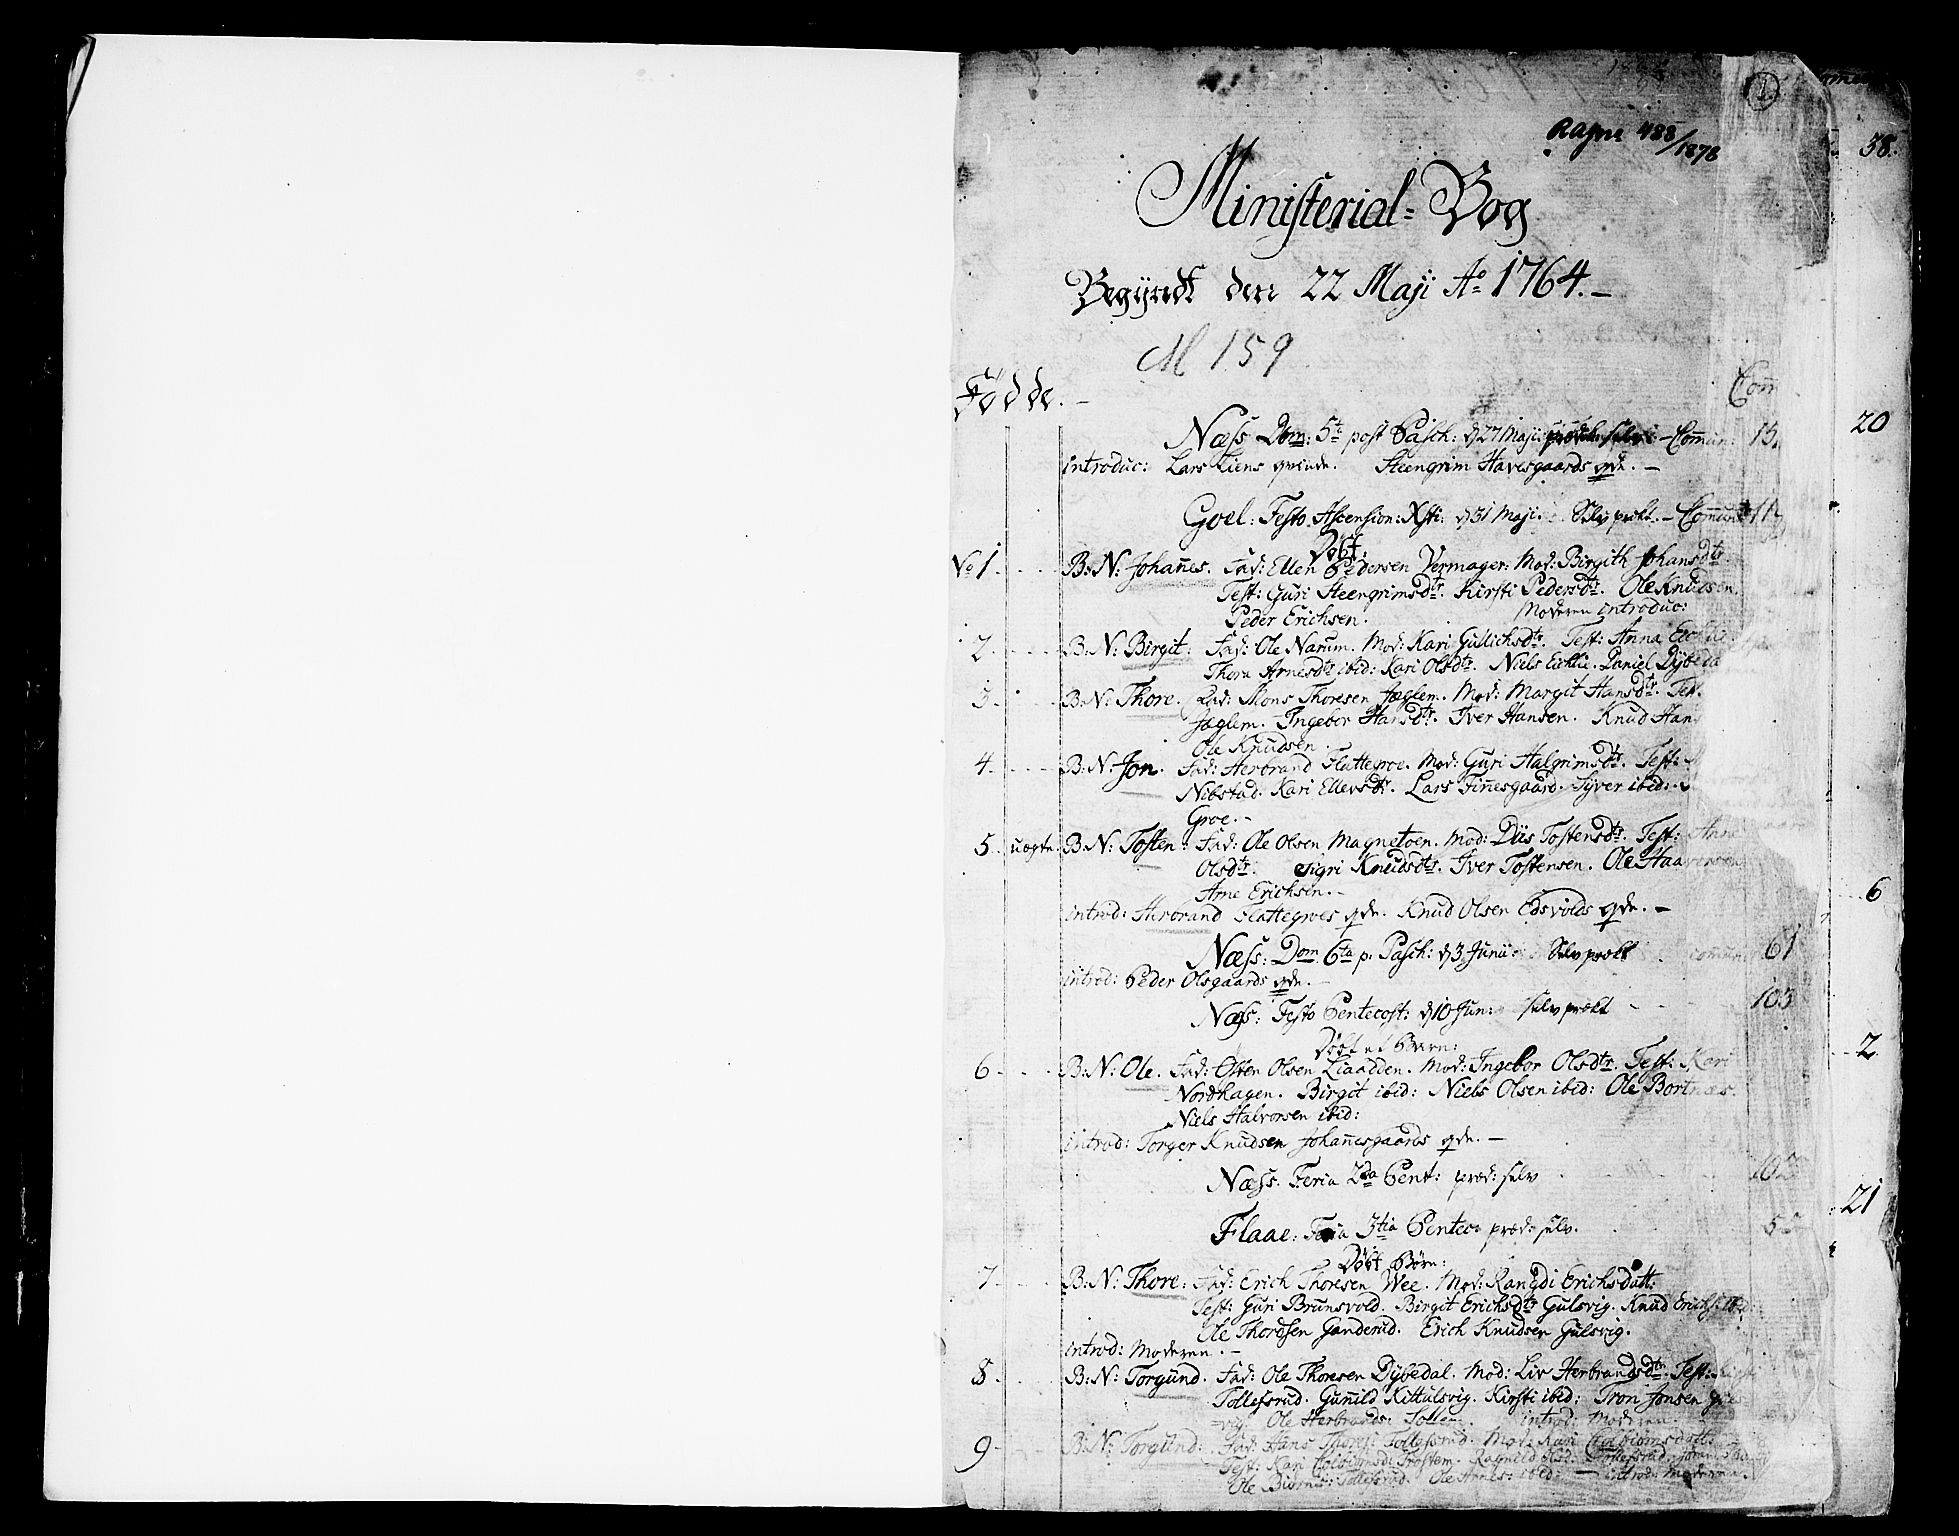 1
Ragne 488/1878
38.
Ministerial-Bog
Begyndt den 22 Maji Ao 1764.-
M 159
Fødde.-
Comm
20
Næss Dom: 5te post Pasch: d 27 Maji - Commun: 15
introduc: Lars Liens qvinde. Steengrim Havesgaards qde. -
Goel: Festo Ascension: Xsti: d 31 Maji. Selv prækt. - Commun 11
Døbt.
No 1 B: N: Johannes. Fad: Ellen Pedersen Vermager: Mod: Birgith Johansdtr.
Test: Guri Steengrimsdtr. Kirsti Pedersdtr. Ole Knudsen.
Peder Erichsen. Moderen introduc:
2 B: N: Birgit: Fad: Ole Narum. Mod: Kari Gullichsdtr. Test: Anna
Thora Arnesdtr ibid: Kari Olsdtr. Niels Eichlie. Daniel Dybeda
3 B: N: Thore. Fad: Mons Thoresen Jæglem. Mod: Margit Hansdtr. Test
Jæglem. Ingebor Hansdtr. Iver Hansen. Knud Han
Ole Knudsen.
4 B: N: Jon. Fad: Herbrand Flattegroe. Mod: Guri Halgrimsdtr. Test:
Nibstad. Kari Ellevsdtr. Lars Finnesgaard. Syver ibid:
Groe.-
5 uægte B: N: Tosten: Fad: Ole Olsen Magnetoen. Mod: Diis Tostensdtr. Test: Anne
Olsdtr. Sigri Knudsdtr. Iver Tostensen. Ole Haavorsen
Arne Erichsen.-
6
introd: Herbrand Flattegroes qde. Knud Olsen Edsvolds qde. -
Næss: Dom 6ta p. Pasch: d 3 Junii Selv prækt commun 61
introd: Peder Olsgaards qde. -
Næss: Festo Pentecost: d 10 Jun: selv prækt 103
Døbt et Barn:
2
6 B: N: Ole. Fad: Osten Olsen Liaadden. Mod: Ingebor Olsdtr. Test: Kari
Nordhagen. Birgit ibid: Niels Olsen ibid: Ole Bortnæs.
Niels Halvorsen ibid:
introd: Torger Knudsen Johannesgaards qde. -
Næss: Feria 2da Pent: præd: selv
21
Flaae: Feria 3tia Pentec: præd: selv.
Døbt Børn:
7 B: N: Thore: Fad: Erich Thoresen Wee. Mod: Rangdi Erichsdatt:
Test: Guri Brunsvold. Birgit Erichsdtr Gulsvig. Knud Erichs: ibid:
Ole Thordsen Ganderud. Erich Knudsen Gulsvig.
introd: Moderen. -
8 B: N: Torgund. Fad: Ole Thoresen Dybedal. Mod: Liv Herbrandsdtr. Test:
Tollefsrud. Gunild Kittulsvig. Kirsti ibid: Tron Jonsen
Ole Herbrands: introd: Moderen.
9 B: N: Torgund: Fad: Hans Thores: Tollefsrud. Mod: Kari
Test: Kari Trostem. Ragnild Olsd: Tollefsrud.
Ole Biørns: Tollefsrud. Ole Arnes: ibid: - introd: Moderen.